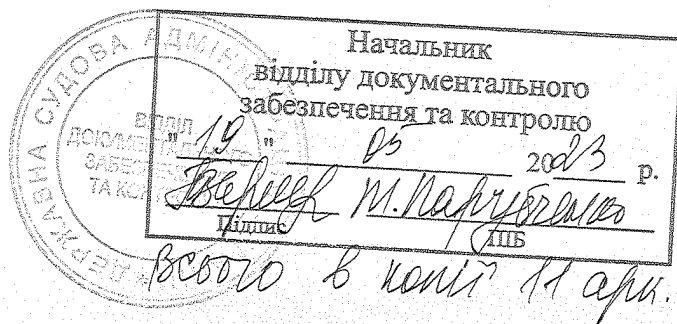 ДЕРЖАВНА СУДОВА АДМІНІ
ВІДДІЛ
ДОКУМЕН
ЗАБЕЗ
ТА КО
Начальник
відділу документального
забезпечення та контролю
" 19 " 05 2023 р.
Т.
Підпис ПІБ
Всього в копії 11 арк.